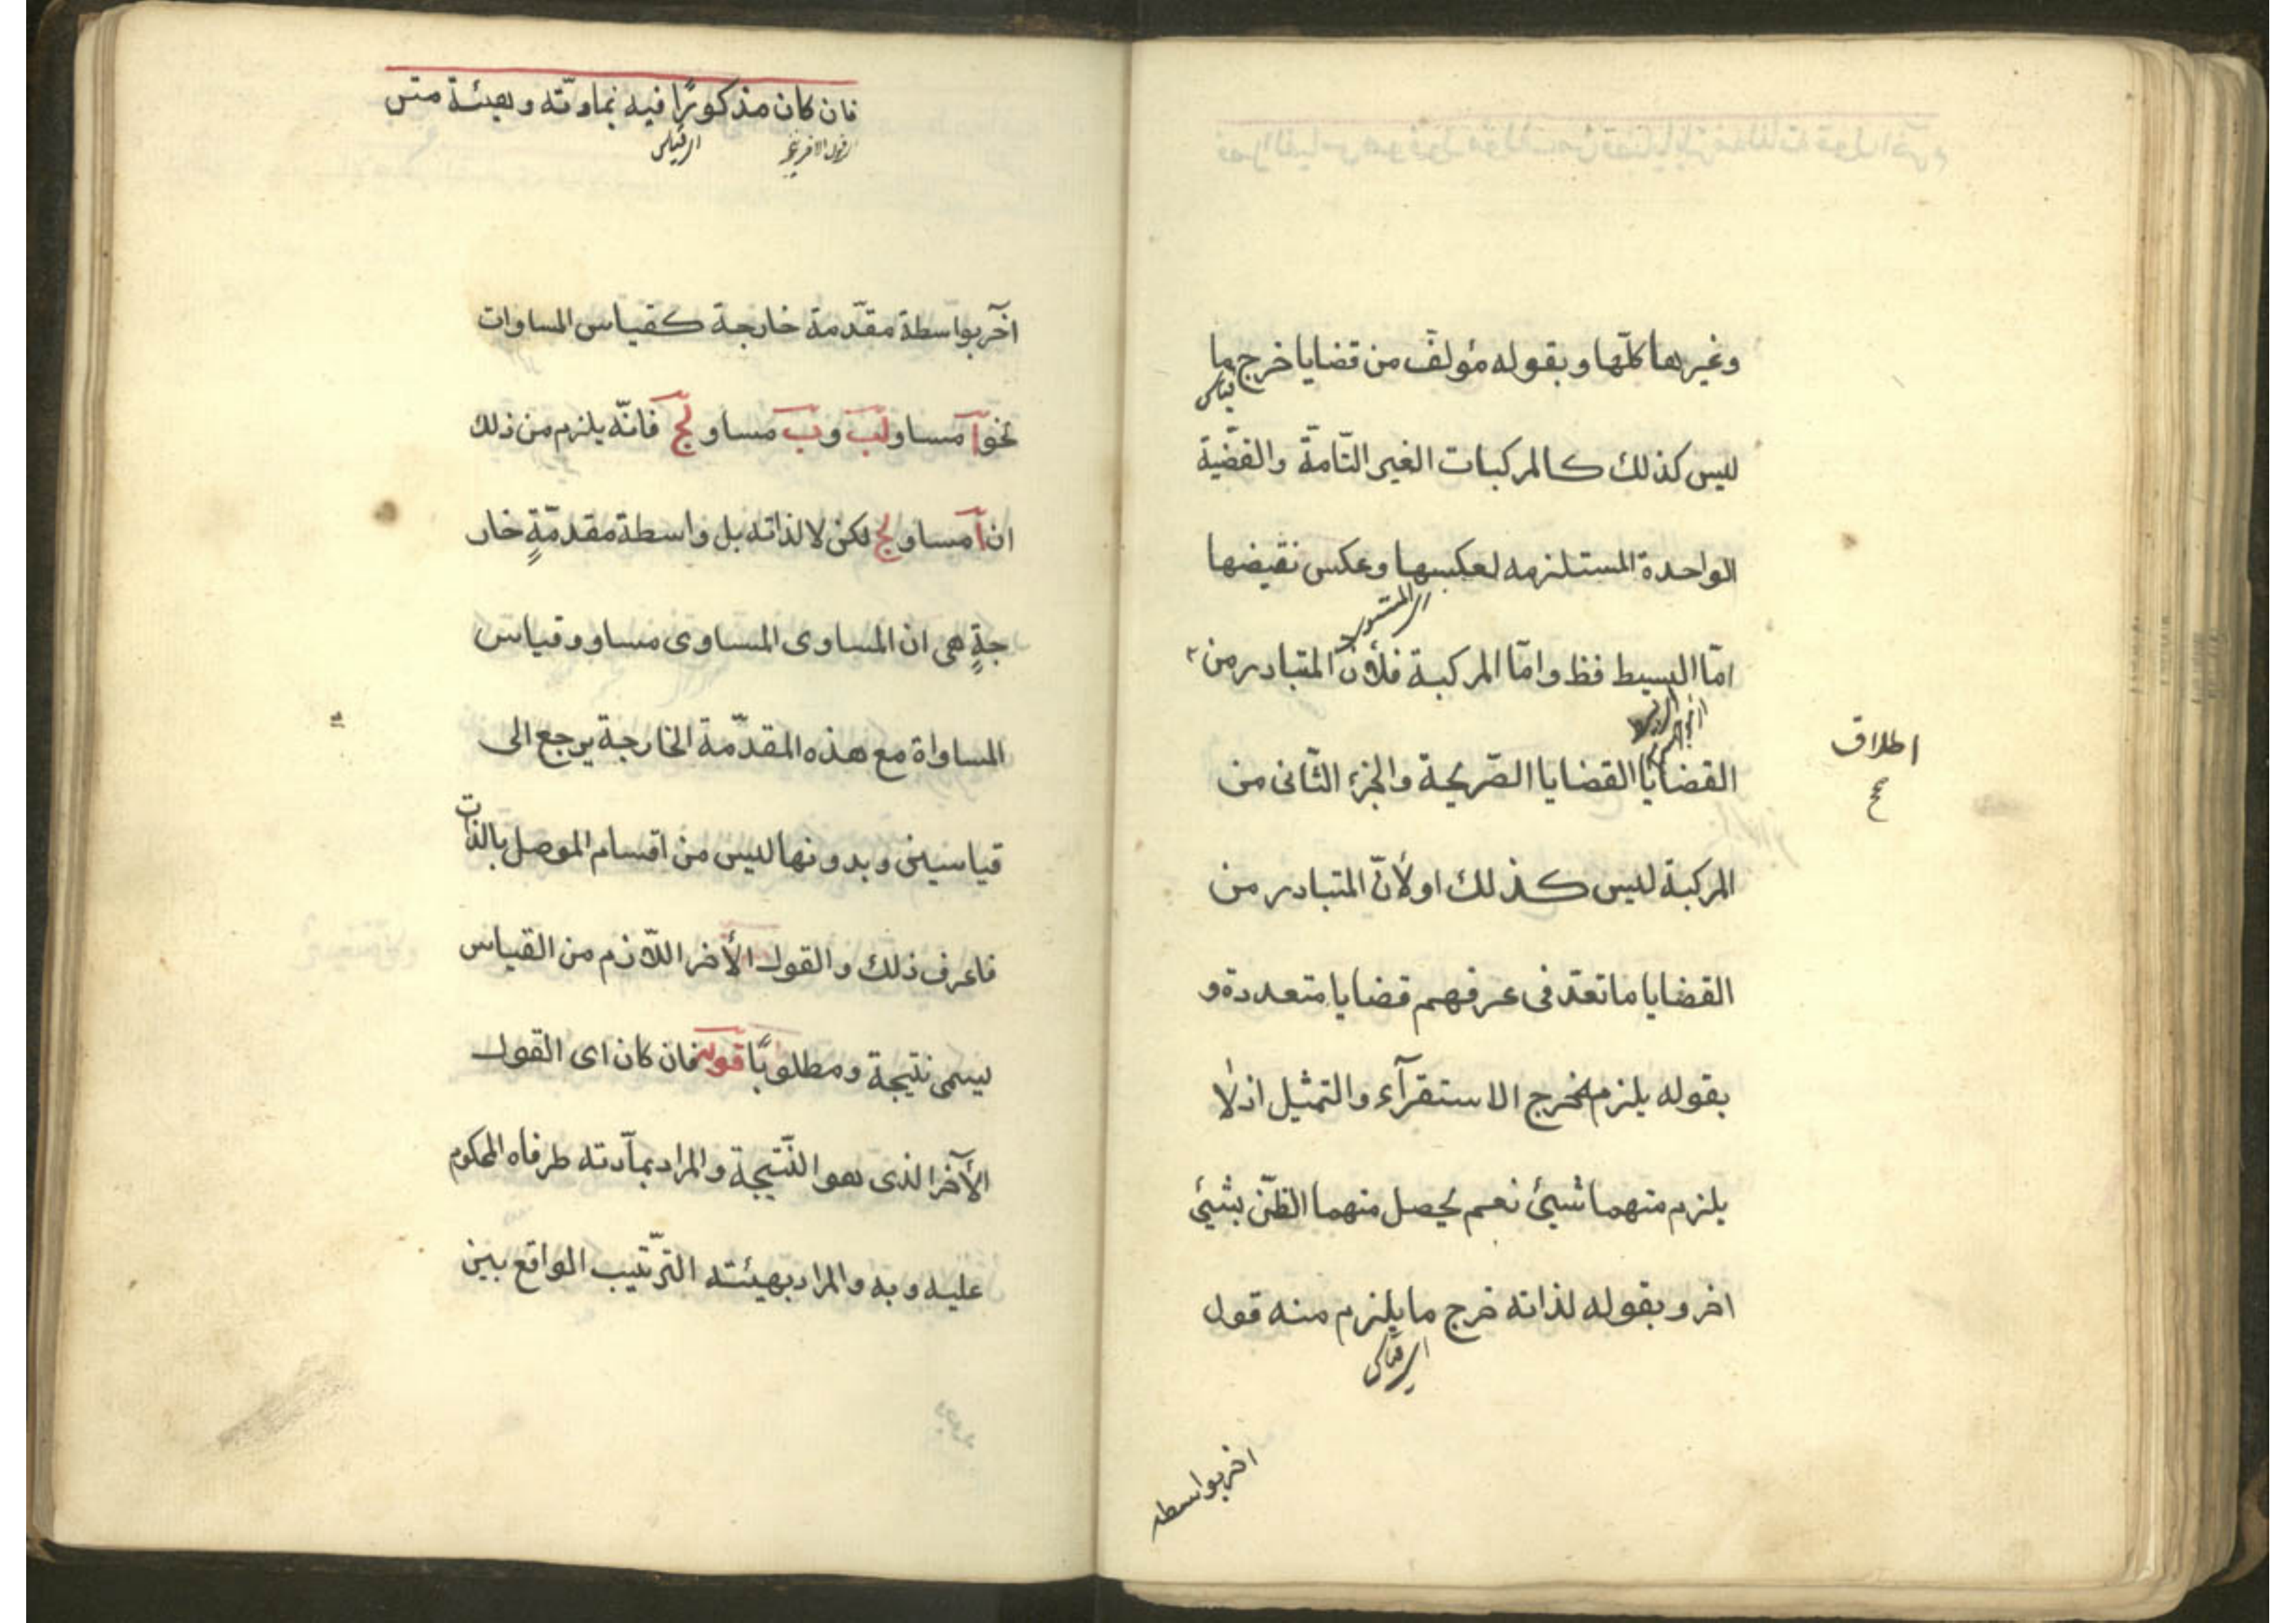 وغيرها كلّها وبقوله مؤلف من قضايا خرج ما
ليس كذلك كالمركبات الغير التّامّة والقضّية
الواحدة المستلزمه لعكسها وعكس نقيضها
امّا البسيط فظ وامّا المركبة فلأنّ المتبادر من
اطلاق
صح
القضايا القضايا الصّريحة والجزء الثّانى من
المركبة ليس كذلك اولأنّ المتبادر من
القضايا ما تعدّ فى عرفهم قضايا متعددة و
بقوله يلزم يخرج الاستقرآء والتمثيل اذلا
يلزم منهما شيئ نعم يحصل منهما الظّنّ بشيئ
اخر وبقوله لذاته خرج ما يلزم منه قول
اى قياس
اخر بواسطه
فان كان مذكورًا فيه بمادّته وبهيئة متن
اى قياس
آخر بواسطة مقدّمة خارجة كقياس المساوات
نحو آ مساو لب وب مساو لج فانّه يلزم من ذلك
ان آ مساو لج لكن لا لذاته بل واسطة مقدمّةٍ خار
جةٍ هى ان المساوى المساوى مساو وقياس
المساواة مع هذه المقدّمة الخارجة يرجع الى
قياسين وبدونها ليس من اقسام الموصل بالذات
فاعرف ذلك والقول الأخر اللّازم من القياس
يسمى نتيجة ومطلوبًا قوله فان كان اى القول
الآخر الذى هو النّتيجة والمراد بمآدته طرفاه المحكوم
عليه وبه والمراد بهيئته التّرتيب الواقع بين